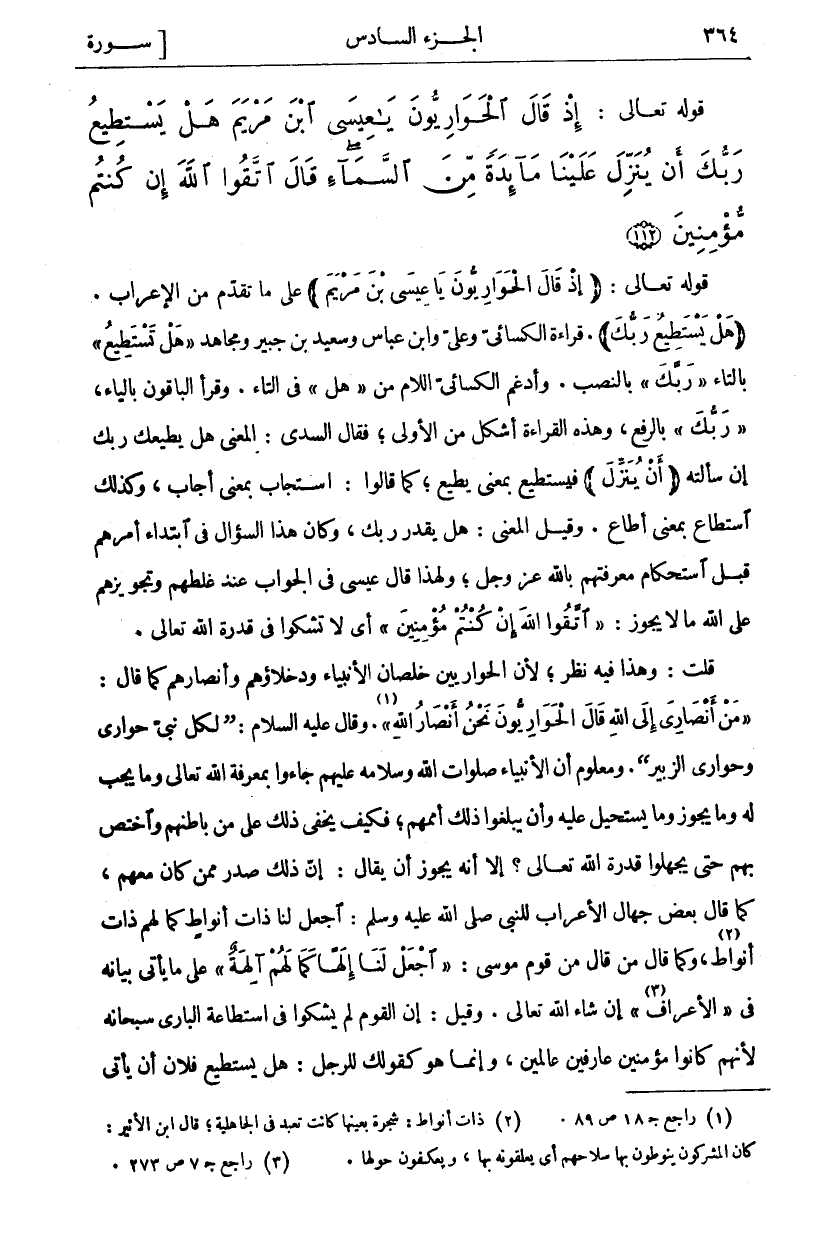 ٣٦٤ الجزء السادس [ سورة
قوله تعالى : إِذْ قَالَ ٱلْحَوَارِيُّونَ يَٰعِيسَى ٱبْنَ مَرْيَمَ هَلْ يَسْتَطِيعُ
رَبُّكَ أَن يُنَزِّلَ عَلَيْنَا مَآئِدَةً مِّنَ ٱلسَّمَآءِ قَالَ ٱتَّقُوا ٱللَّهَ إِن كُنتُم
مُّؤْمِنِينَ ﴿١١٢﴾
قوله تعالى : ﴿ إِذْ قَالَ الْحَوَارِيُّونَ يَا عِيسَى بْنَ مَرْيَمَ ﴾ على ما تقدّم من الإعراب .
﴿هَلْ يَسْتَطِيعُ رَبُّكَ﴾ . قراءة الكسائىّ وعلىّ وابن عباس وسعيد بن جبير ومجاهد «هَلْ تَسْتَطِيعُ»
بالتاء « رَبَّكَ » بالنصب . وأدغم الكسائىّ اللام من « هل » فى التاء . وقرأ الباقون بالياء،
« رَبُّكَ » بالرفع ، وهذه القراءة أشكل من الأولى ؛ فقال السدى : المعنى هل يطيعك ربك
إن سألته ﴿ أَنْ يُنَزِّلَ ﴾ فيستطيع بمعنى يطيع ؛ كما قالوا : استجاب بمعنى أجاب ، وكذلك
ٱستطاع بمعنى أطاع . وقيل المعنى : هل يقدر ربك ، وكان هذا السؤال فى ٱبتداء أمرهم
قبل ٱستحكام معرفتهم بالله عز وجل ؛ ولهذا قال عيسى فى الجواب عند غلطهم وتجويزهم
على الله ما لا يجوز : « ٱتَّقُوا اللهَ إِنْ كُنْتُمْ مُؤْمِنِينَ » أى لا تشكوا فى قدرة الله تعالى .
قلت : وهذا فيه نظر ؛ لأن الحواريين خلصان الأنبياء ودخلاؤهم وأنصارهم كما قال :
«مَنْ أَنْصَارِى إِلَى اللهِ قَالَ الْحَوَارِيُّونَ نَحْنُ أَنْصَارُ اللهِ»(١) . وقال عليه السلام : ”لكل نبىّ حوارى
وحوارى الزبير“ . ومعلوم أن الأنبياء صلوات الله وسلامه عليهم جاءوا بمعرفة الله تعالى وما يجب
له وما يجوز وما يستحيل عليه وأن يبلغوا ذلك أممهم ؛ فكيف يخفى ذلك على من باطنهم وٱختص
بهم حتى يجهلوا قدرة الله تعالى ؟ إلا أنه يجوز أن يقال : إنّ ذلك صدر ممن كان معهم ،
كما قال بعض جهال الأعراب للنبى صلى الله عليه وسلم : ٱجعل لنا ذات أنواط كما لهم ذات
أنواط(٢) ، وكما قال من قال من قوم موسى : « ٱجْعَلْ لَنَا إِلَهًا كَمَا لَهُمْ آلِهَةٌ » على ما يأتى بيانه
فى « الأعراف(٣) » إن شاء الله تعالى . وقيل : إن القوم لم يشكوا فى استطاعة البارى سبحانه
لأنهم كانوا مؤمنين عارفين عالمين ، وإنما هو كقولك للرجل : هل يستطيع فلان أن يأتى
(١) راجع جـ ١٨ ص ٨٩ . (٢) ذات أنواط : شجرة بعينها كانت تعبد فى الجاهلية ؛ قال ابن الأثير :
كان المشركون ينوطون بها سلاحهم أى يعلقونه بها ، ويعكفون حولها . (٣) راجع جـ ٧ ص ٢٧٣ .